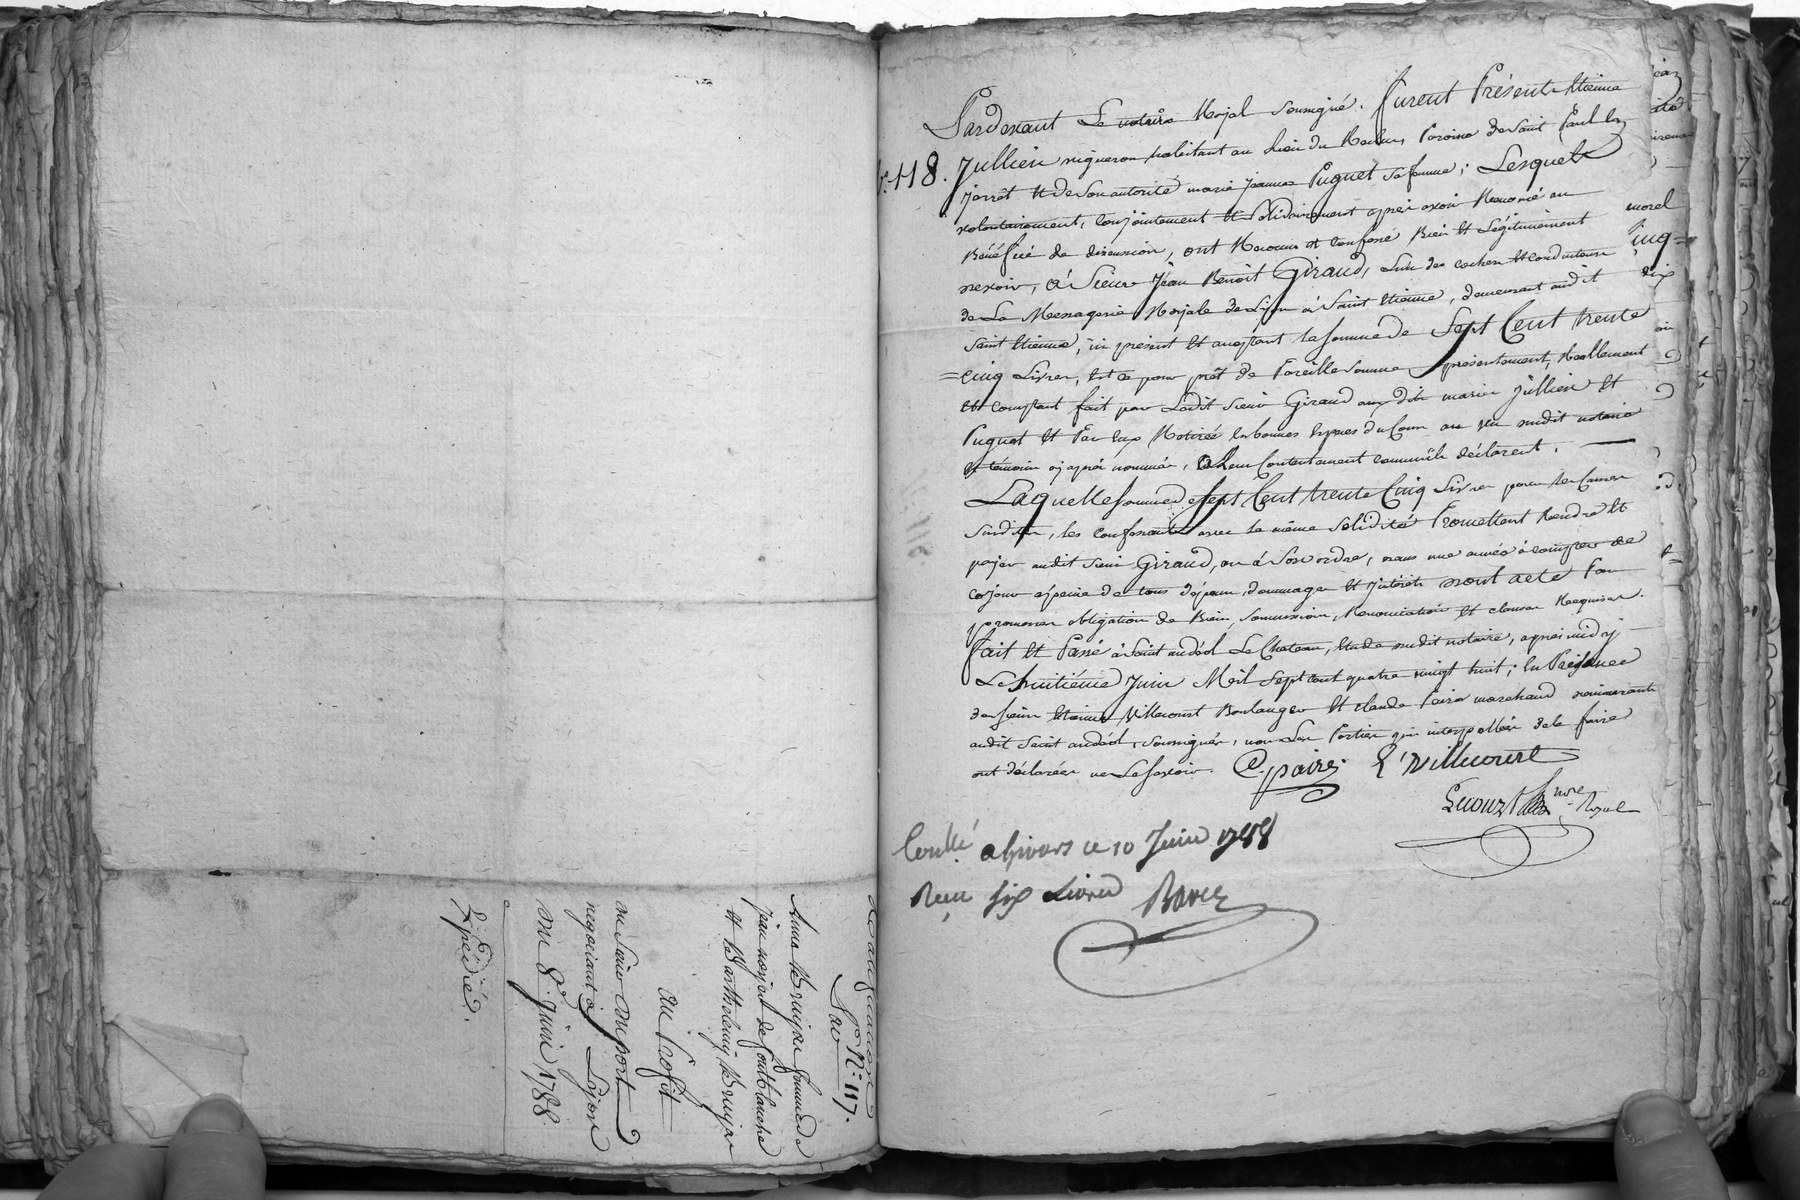 Pardevant Le notaire Royal soussigné. furent Présents Etienne
N.° 118. Jullien vigneron habitant au Lieu du Paroisse de Saint Paul En
jarrêt et de son autorité marie jeanne Puguet sa femme; Lesquels
volontairement, conjointement et Solidairement après avoir Renoncé au
Bénéfice de division, ont Reconnu et confessé Bien et Légitimement
devoir, à Sieur Jean Benoit Giraud, des coches et conducteur
de La Messagerie Royale de Lyon à Saint Etienne, demeurant audit
Saint Etienne, ici présent et acceptant la somme de Sept Cent trente
= cinq Livres, Est ce pour prêt de Pareille Somme présentement, Réellement
et comptant fait par Ledit Sieur Giraud aux dits mariés Jullien et
Puguet et Par Eux Retirée en bonnes Espèces du Cours au vu dudit notaire
et témoins cy après nommés, à Leur Contentement comme ils déclarent.
Laquelle somme de Sept Cent trente Cinq Livres pour les Causes
Susdites, les confessants avec la même Solidité Promettent Rendre et
payer audit Sieur Giraud, ou à Son ordre, dans une année à compter de
ce jour à peine de tous dépens, dommages et intérêts dont acte Par
promesses obligation de Biens, Soumissions, Renonciations et clauses Requises.
fait et Passé à Saint andéol Le Chateau, Etude dudit notaire, après midy
Le huitième Juin Mil Sept cent quatre vingt huit; En Présence
de Sieur Etienne Villecourt Boulanger et claude Paire marchand demeurants
audit Saint andéol, soussignés, non Les Parties qui interpellées de le faire
ont déclarées ne Le savoir. C. paire. E. Villecourt
nore Royal
Conllé a givors ce 10 Juin 1788
Reçu six Livres
N.° 117.
Anne Bruyas femme de
jean noyent de
et Barthelemy Bruyas
au Profit
du Sieur Duport
negociant à Lyon
Du 8.e juin 1788.
Expédié.